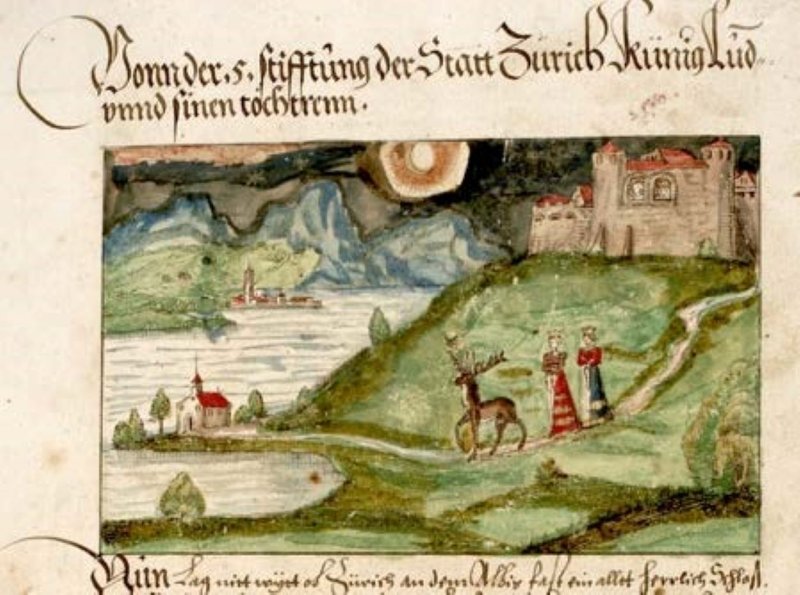 Vonn der .5. stifftung der Statt Zürich Künig Lud
vnnd sinen töchtrenn.
Nün Lag nitt wytt ob Zürich an dem Albis fast ein allt herrlich Schloß.